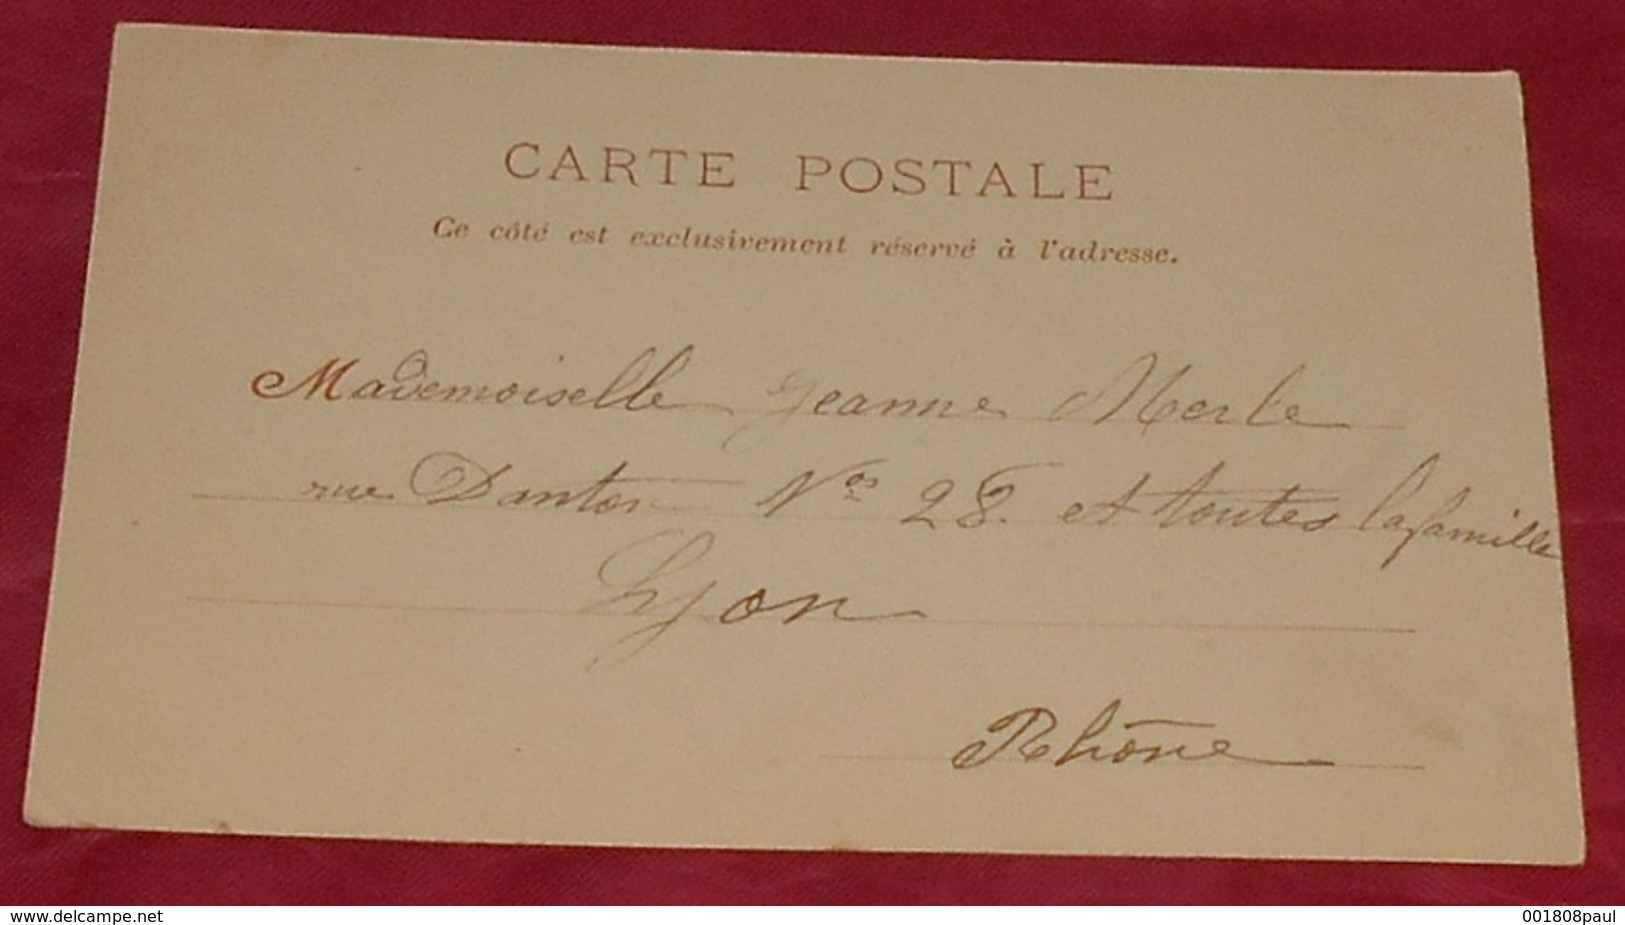 CARTE POSTALE
Ce côté est exclusivement réservé à l'adresse.
Mademoiselle Jeanne Merle
rue Danton Nos 28. et toutes la famille
Lyon
Rhône
www.delcampe.net
001808paul